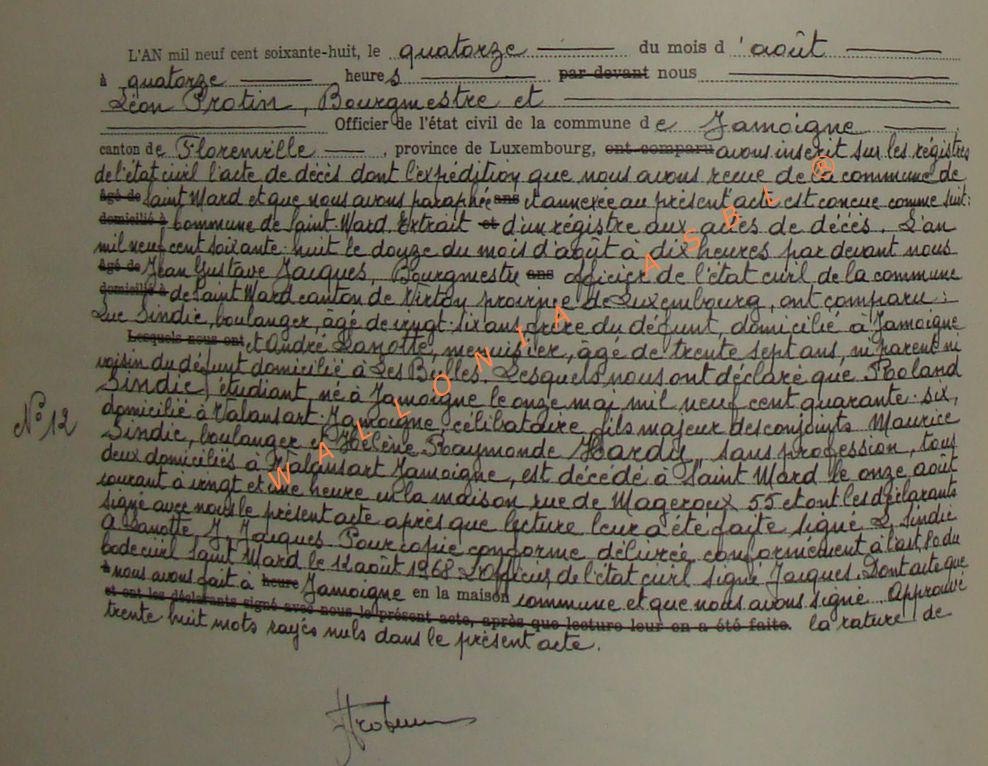 L'AN mil neuf cent soixante-huit, le quatorze du mois d'août
à quatorze heures par devant nous
Léon Protin, Bourgmestre et
Officier de l'état civil de la commune de Jamoigne
canton de Florenville, province de Luxembourg, ont comparu avons inscrit sur les régistres
de l'état civil l'acte de décès dont l'expédition que nous avons reçue de la commune de
âgé de Saint Mard et que nous avons paraphée ans et annexée au présent acte est conçue comme suit:
domicilié à commune de Saint-Mard Extrait et d'un régistre aux actes de décès. L'an
mil neuf cent soixante-huit le douze du mois d'août à dix heures par devant nous
âgé de Jean Gustave Jacques, Bourgmestre ans officier de l'état civil de la commune
domicilié à de Saint Mard canton de Virton province de Luxembourg, ont comparu:
Luc Sindic, boulanger, âgé de vingt-six ans, frère du défunt, domicilié à Jamoigne
Lesquels nous ont et André Lanotte, menuisier, âgé de trente sept ans, ni parent ni
voisin du défunt domicilié à Les Bulles. Lesquels nous ont déclaré que Roland
Sindic, étudiant, né à Jamoigne le onze mai mil neuf cent quarante-six,
domicilié à Valansart-Jamoigne, célibataire, fils majeur des conjoints Maurice
N° 12
Sindic, boulanger et Hélène Raymonde Hardy, sans profession, tous
deux domiciliés à Valansart Jamoigne, est décédé à Saint Mard le onze août
courant à vingt et une heure en la maison rue de Mageroux 55 et ont les déclarants
signé avec nous le présent acte après que lecture leur a été faite signé L. Sindic
A Lanotte, J. Jacques Pour copie conforme délivrée conformément à l'art. 80 du
code civil Saint Mard le 12 août 1968 L'Officier de l'état civil signé Jacques. Dont acte que
à nous avons fait à heure Jamoigne en la maison commune et que nous avons signé. Approuvé
et ont les déclarants signé avec nous le présent acte, après que lecture leur en a été faite. la rature de
trente huit mots rayés nuls dans le présent acte.
WALLONIA ASBL ®